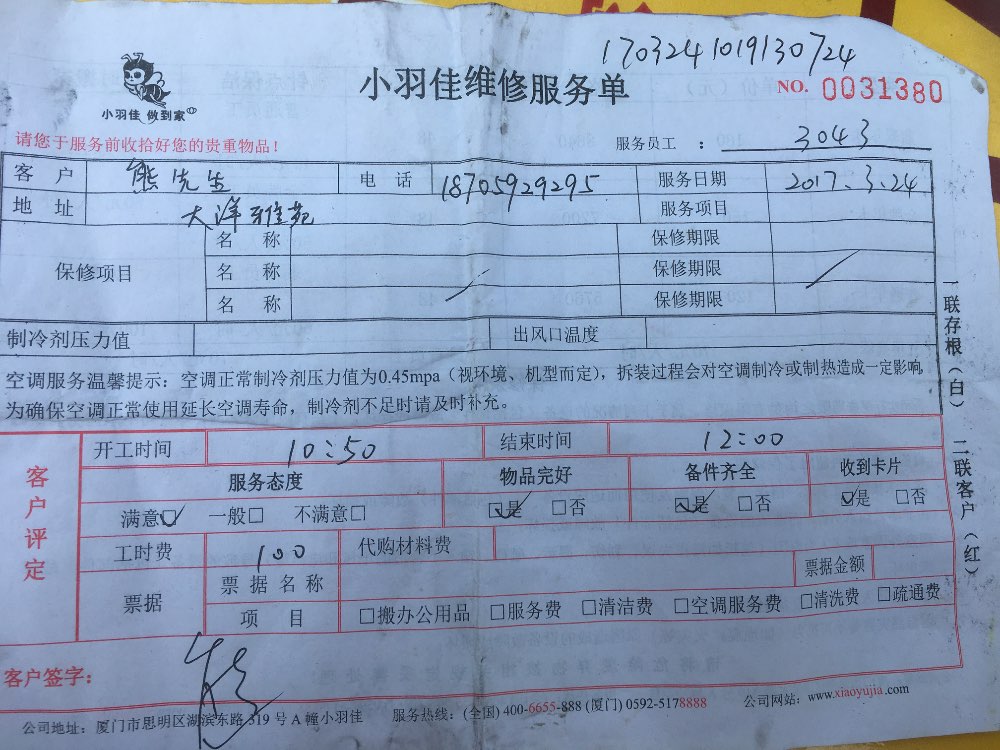 170324101913０724
小羽佳 做到家
小羽佳维修服务单
NO. 0031380
请您于服务前收拾好您的贵重物品!
服务员工 : 3043
客户 熊先生 电话 18705929295 服务日期 2017.3.24
地址 大洋雅苑 服务项目
保修项目 名称 保修期限
名称 保修期限
名称 保修期限
制冷剂压力值 出风口温度
空调服务温馨提示:空调正常制冷剂压力值为0.45mpa(视环境、机型而定),拆装过程会对空调制冷或制热造成一定影响
为确保空调正常使用延长空调寿命,制冷剂不足时请及时补充。
一联存根(白) 二联客户(红)
客户评定
开工时间 10:50 结束时间 12:00
服务态度 物品完好 备件齐全 收到卡片
满意☑ 一般□ 不满意□ ☑是 □否 ☑是 □否 ☑是 □否
工时费 100 代购材料费
票据 票据名称 票据金额
项目 □搬办公用品 □服务费 □清洁费 □空调服务费 □清洗费 □疏通费
客户签字:
公司地址:厦门市思明区湖滨东路319号A幢小羽佳 服务热线:(全国)400-6655-888(厦门)0592-5178888 公司网站:www.xiaoyujia.com